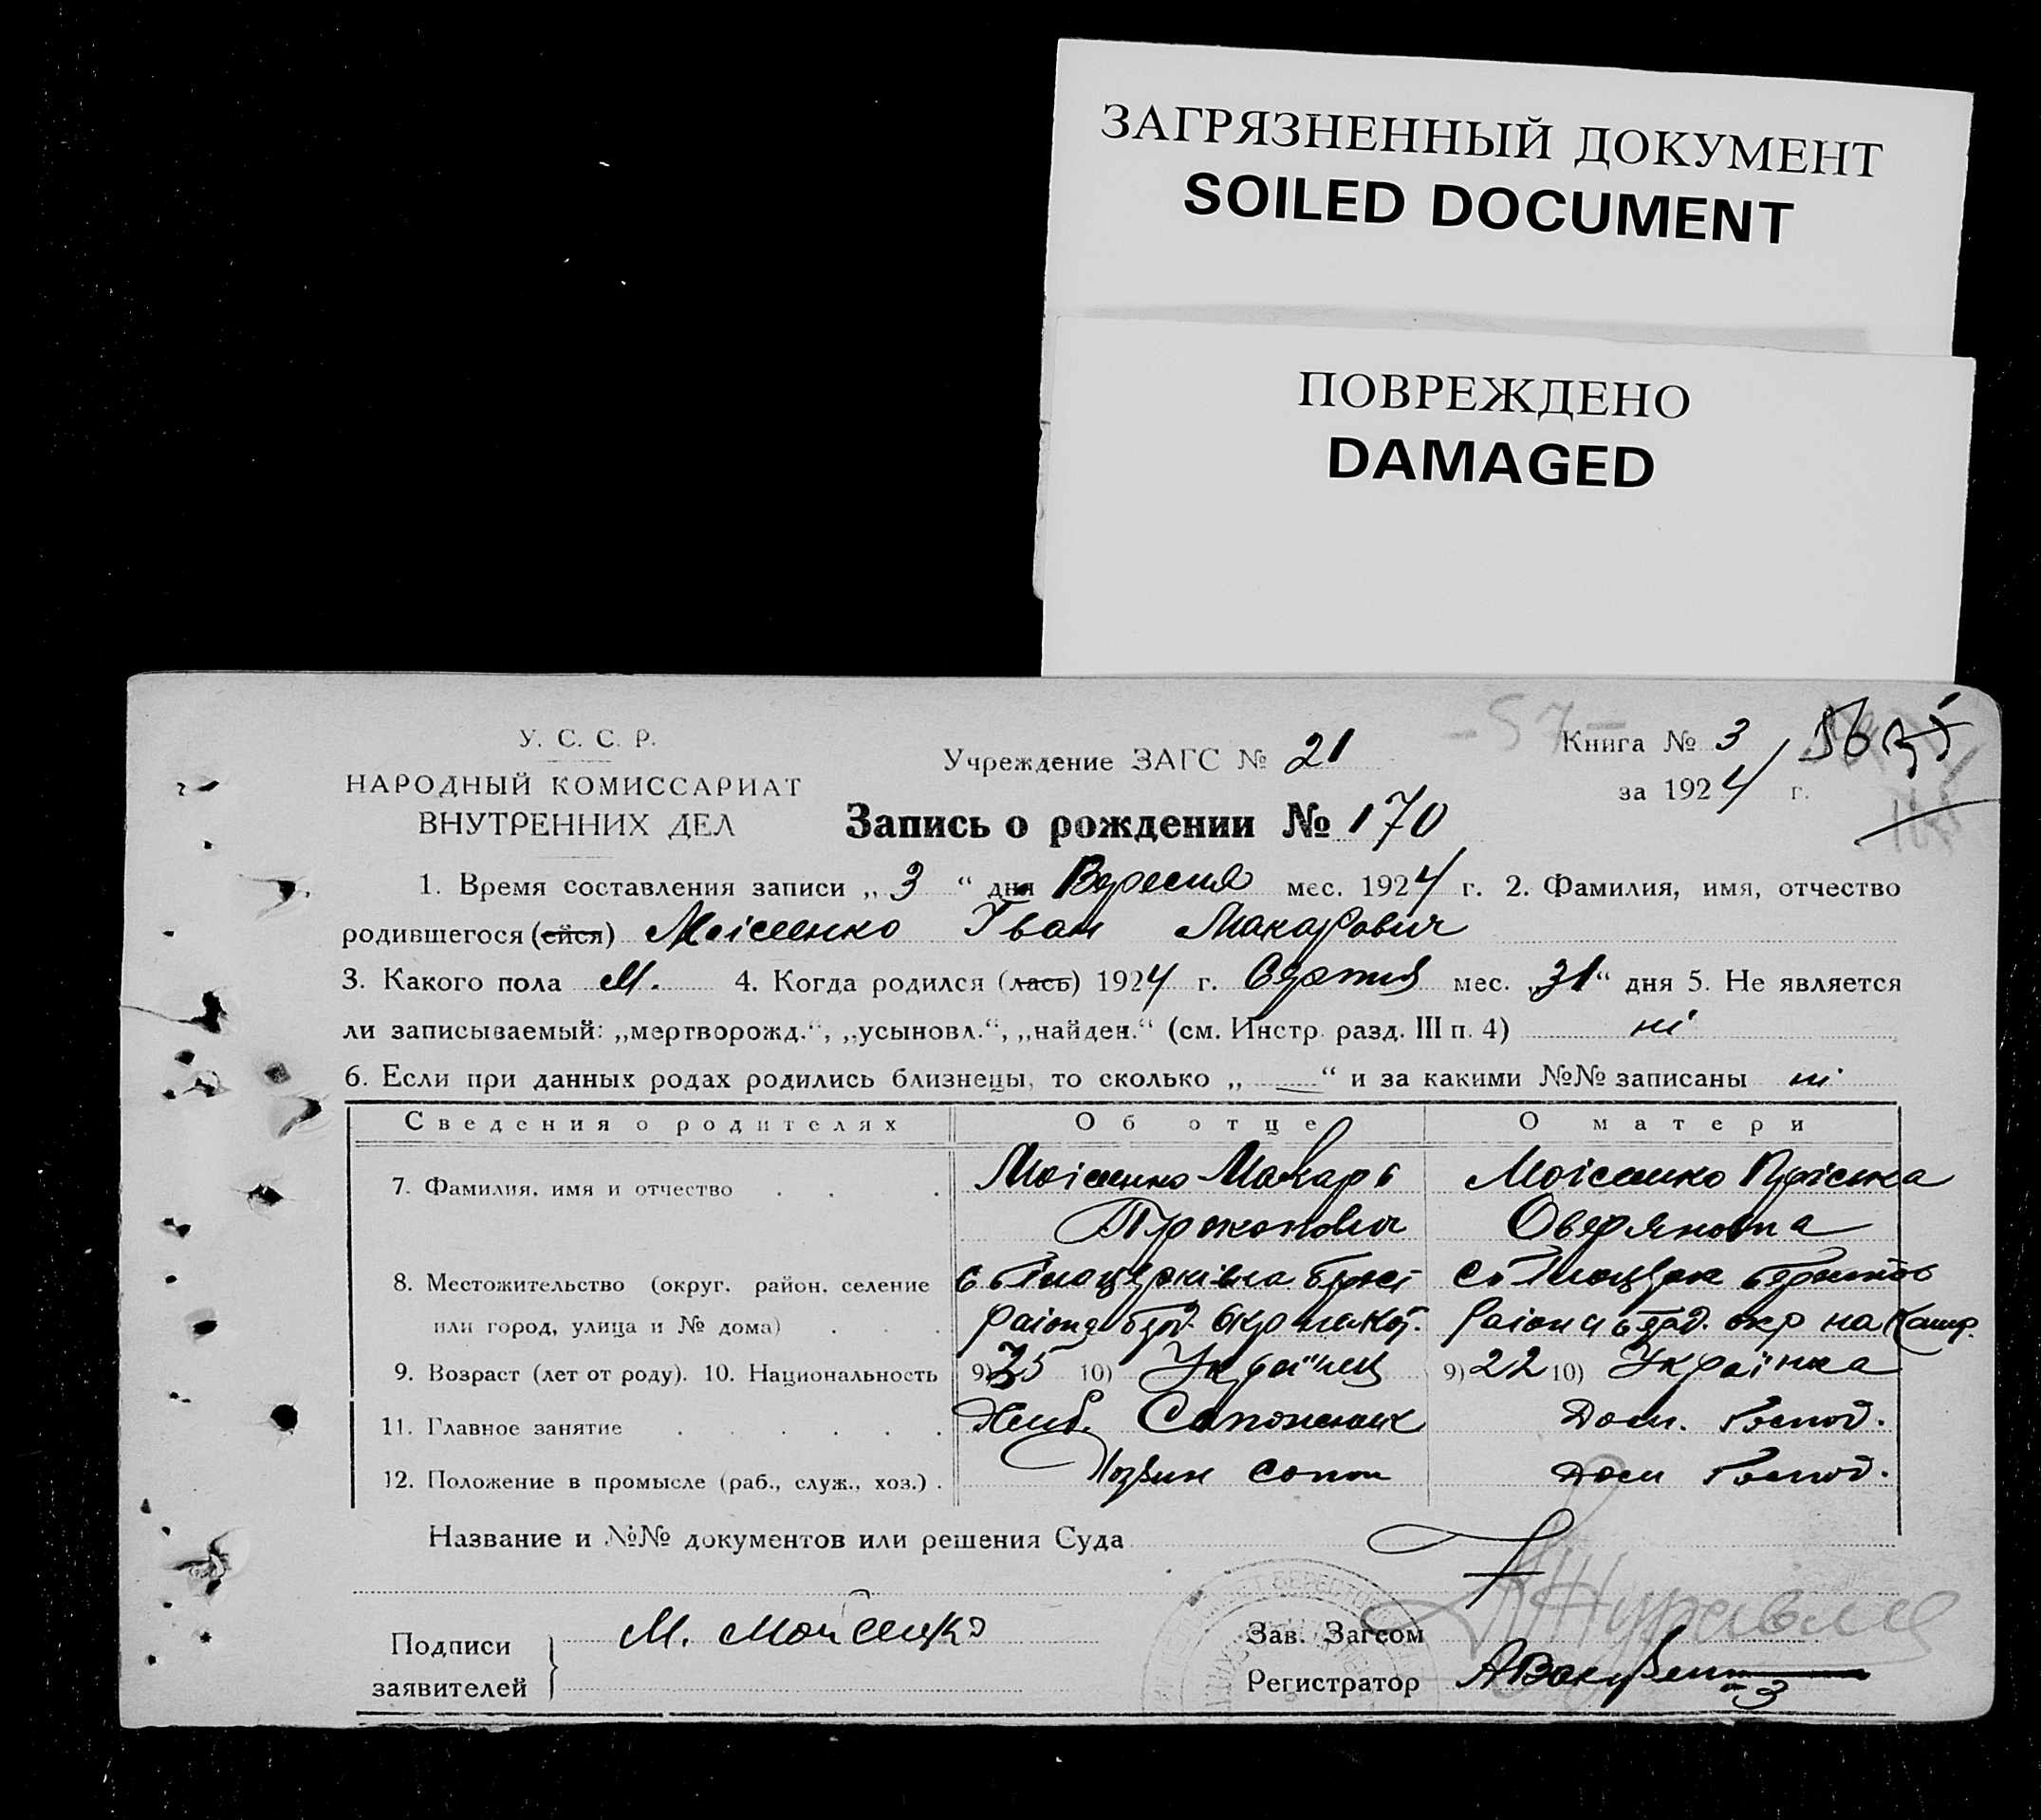 ЗАГРЯЗНЕННЫЙ ДОКУМЕНТ
SOILED DOCUMENT
ПОВРЕЖДЕНО
DAMAGED
- 57 -
У. С. С. Р.
НАРОДНЫЙ КОМИССАРИАТ
ВНУТРЕННИХ ДЕЛ
Учреждение ЗАГС № 21
Книга № 3
за 1924 г.
Запись о рождении № 170
1. Время составления записи „ 3 “ дня Вересня мес. 1924 г. 2. Фамилия, имя, отчество
родившегося (ейся) Моісеенко Іван Макарович
3. Какого пола М. 4. Когда родился (лась) 1924 г. Серпня мес. „31“ дня 5. Не является
ли записываемый: „мертворожд.“, „усыновл.“, „найден.“ (см. Инстр. разд. III п. 4) ні
6. Если при данных родах родились близнецы, то сколько „ — “ и за какими №№ записаны ні
Сведения о родителях Об отце О матери
7. Фамилия, имя и отчество Моісеенко Макарь Моісеенко Пріська
Прокопович Оверяновна
8. Местожительство (округ, район, селение
или город, улица и № дома) района окр района окр на
9. Возраст (лет от роду). 10. Национальность 9) 35 10) Українец 9) 22 10) Українка
11. Главное занятие Хліб. Сапожник Дом. Господ.
12. Положение в промысле (раб., служ., хоз.) Хозяин сапож Дом Господ.
Название и №№ документов или решения Суда
Подписи
заявителей
М. Мойсенко
Зав. Загсом
Регистратор